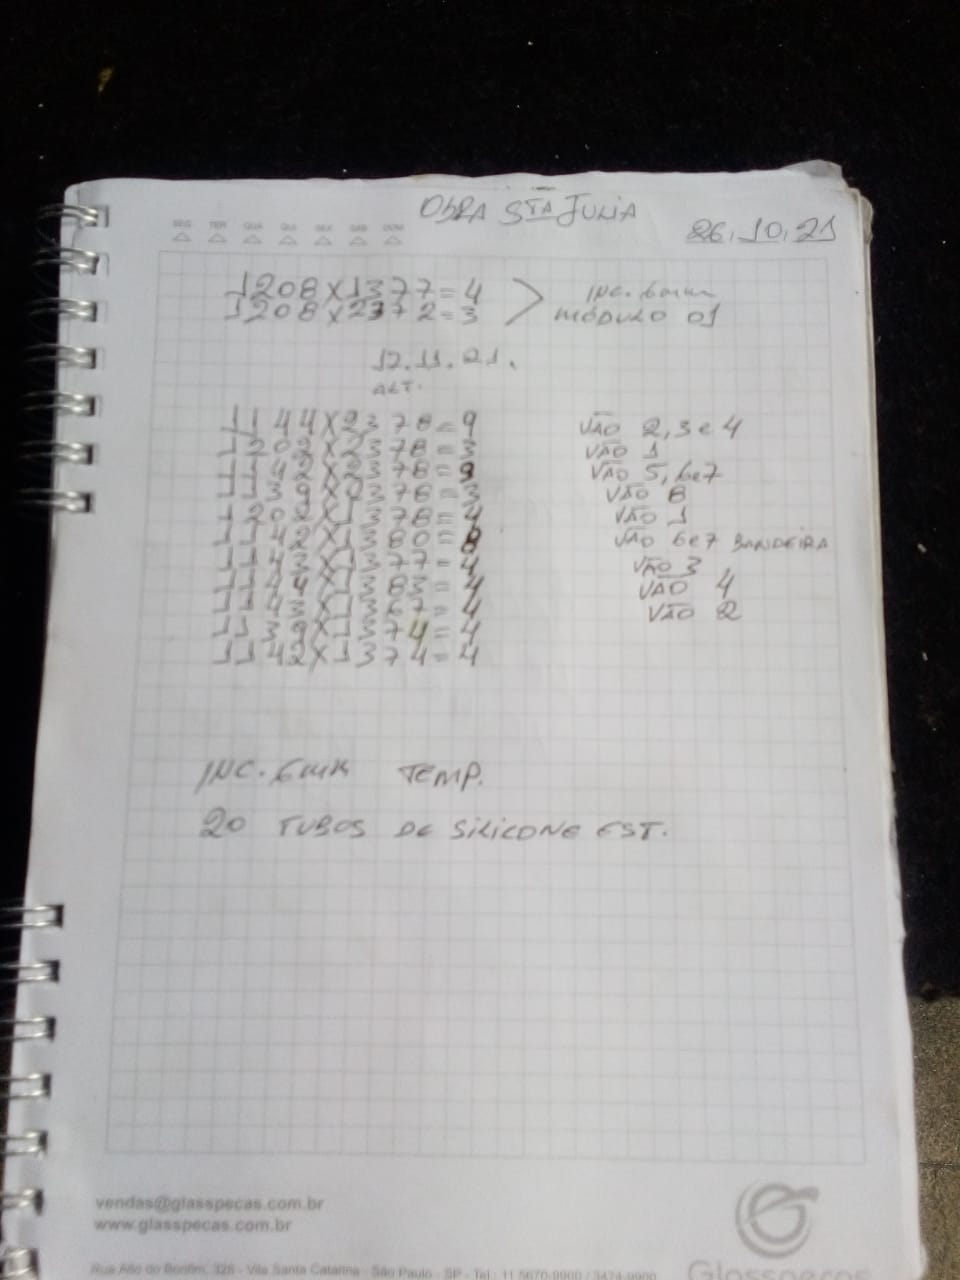 OBRA STA JULIA
26.10.21
SEG TER QUA QUI SEX SÁB DOM
1208x1377=4
1208x2372=3
INC. 6mm
MÓDULO 01
17.11.21.
ALT.
1144x2378=9 VÃO 2,3 e 4
1202x2378=3 VÃO 1
1142x2378=9 VÃO 5, 6e7
1139x2378=3 VÃO 8
1202x1378=4 VÃO 1
1142x1380=8 VÃO 6e7 BANDEIRA
1143x1377=4 VÃO 3
1144x1383=4 VÃO 4
1143x1367=4 VÃO 2
1139x1374=4
1142x1374=4
INC. 6mm TEMP.
20 TUBOS DE SILICONE EST.
vendas@glasspecas.com.br
www.glasspecas.com.br
Rua Alto do Bonfim, 328 - Vila Santa Catarina - São Paulo - SP - Tel.: 11 5670-9900 / 3474-9900
Glasspeças